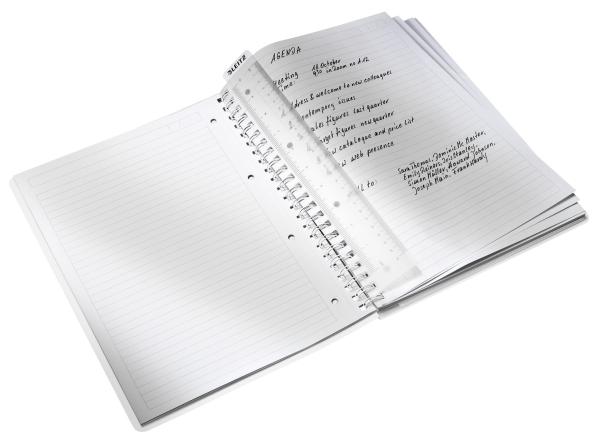 LEITZ
AGENDA
eeting 18. October
ime: 9:30 in Room no A 12
dress & welcome to new colleagues
ontemporary issues
ales figures last quarter
rget figures new quarter
w catalogue and price list
w web presence
to:
Sara Thomas, Dominic Mc Master,
Emily Reiners, Iris Stanley,
Simon Müller, Howard Johnson,
Joseph Main, Frank Handy